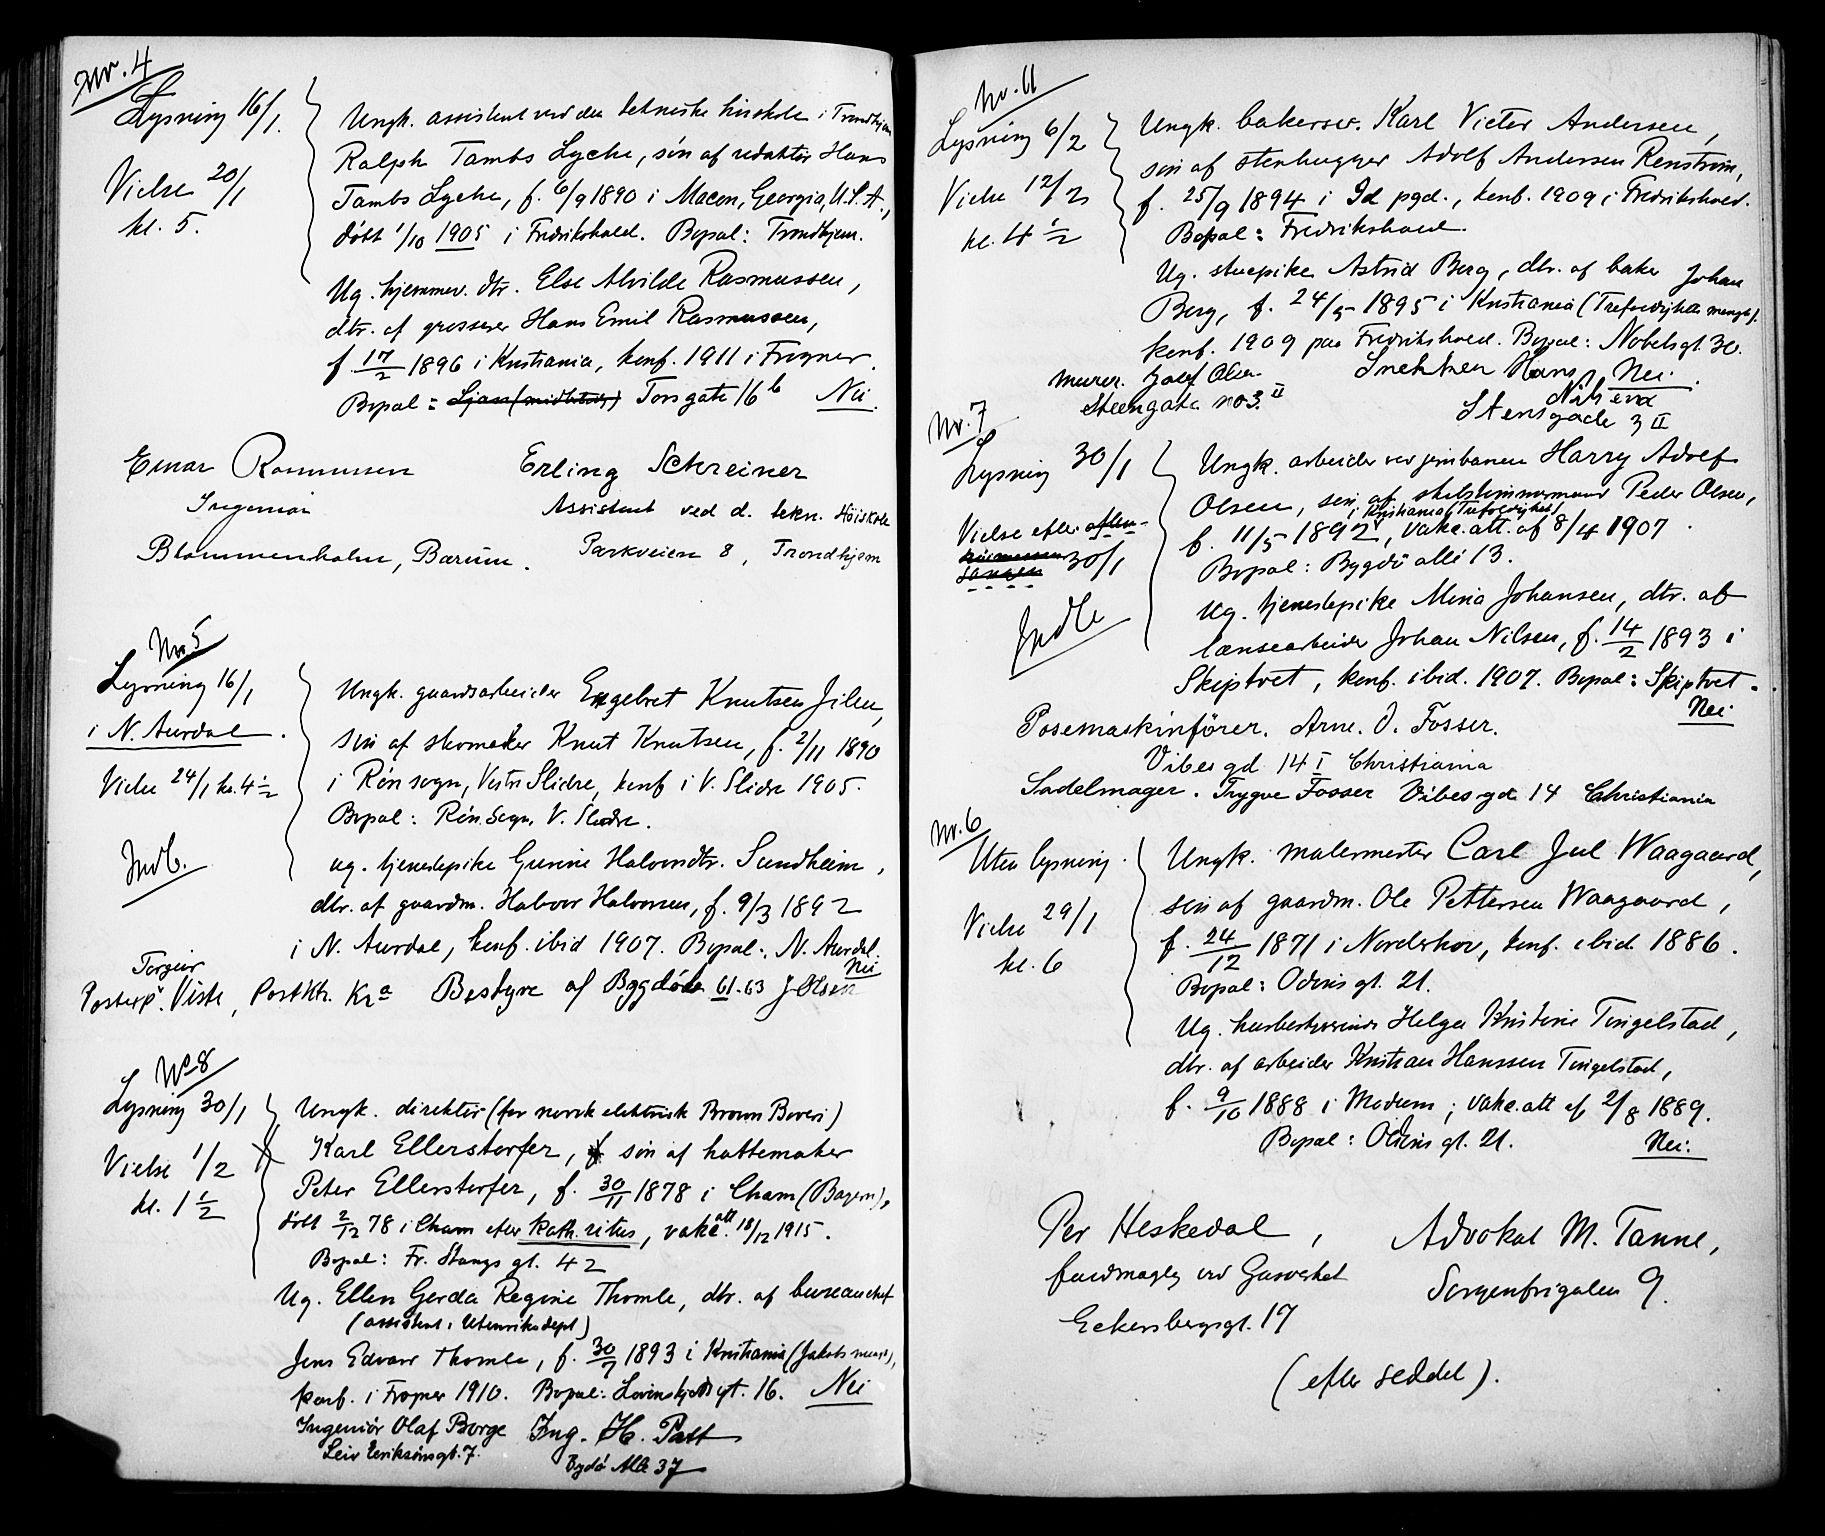 Nr. 4
Lysning 16/1.
Vielse 20/1
kl. 5.
Ungk. assistent ved den tekniske höiskole i Trondhjem
Ralph Tambs Lyche, sön af redaktör Hans
Tambs Lyche, f. 6/9 1890 i Macon, Georgia, U.S.A.,
döbt 1/10 1905 i Fredrikshald. Bopæl: Trondhjem.
Ug. hjemmev. dtr. Else Alvilde Rasmussen,
dtr. af grosserer Hans Emil Rasmussen,
f. 17/2 1896 i Kristiania, konf. 1911 i Frogner.
Bopæl: Ljan (midlertidig) Torsgate 16 b Nei.
Einar Rasmussen
Ingeniör
Blommenholm, Bærum.
Erling Schreiner
Assistent ved d. tekn. Höiskole
Parkveien 8, Trondhjem
Nr. 5
Lysning 16/1
i N. Aurdal.
Vielse 24/1 kl. 4 1/2
Indb.
Ungk. gaardsarbeider Engebret Knutsen Jilen,
sön af skomaker Knut Knutsen, f. 2/11 1890
i Rön sogn, Vestre Slidre, konf i V. Slidre 1905.
Bopæl: Rön Sogn, V. Slidre.
ug. tjenestepike Gunine Halvorsdtr. Sundheim,
dtr. af gaardm. Halvor Halvorsen, f. 9/3 1892
i N. Aurdal, konf. ibid 1907. Bopæl: N. Aurdal.
Nei
Torgeir
Postexp. Viste, Postktr. Kra Bestyre af Bygdö 61-63 J. Olsen
No 8
Lysning 30/1
Vielse 1/2
kl. 1 1/2
Ungk. direktör (for norsk elektrisk Brown Boveri)
Karl Ellerstorfer, sön af hattemaker
Peter Ellerstorfer, f. 30/11 1878 i Cham (Bayern),
döbt 2/12 78 i Cham efter kath. ritus, vakc. att. 18/12 1915.
Bopæl: Fr. Stangs gt. 42
Ug. Ellen Gerda Regine Thomle, dtr. af bureauchef
(assistent i Utenriksdept)
Jens Edvard Thomle, f. 30/7 1893 i Kristiania (Jakobs menigh.),
konf. i Frogner 1910. Bopæl: Lövenskjoldsgt. 16. Nei
Ingeniör Olaf Borge Ing. H. Patt
Leiv Eeriksönsgt. 7. Bygdö Alle 37
Nr. 11
Lysning 6/2
Vielse 12/2
kl. 4 1/2
Ungk. bakersv. Karl Victor Andersen,
sön af stenhugger Adolf Andersen Renström,
f. 25/9 1894 i Id pgd., konf. 1909 i Fredrikshald.
Bopæl: Fredrikshald.
Ug. stuepike Astrid Berg, dtr. af baker Johan
Berg, f. 24/5 1895 i Kristiania (Trefoldighets mengh.).
konf. 1909 paa Fredrikshald. Bopæl: Nobelsgt. 30.
Nei.
Murer. Josef Olsen
Steengate no 3. II
Snekker Hans
Stensgade 3 II
Nr. 7
Lysning 30/1
Vielse efter aften-
sangen 30/1
Indb
Ungk. arbeider ved jernbanen Harry Adolf
Olsen, sön af skibstømmermand Peder Olsen,
i Kristiania (Trefoldighet)
f. 11/5 1892, vakc. att. af 8/4 1907.
Bopæl: Bygdö allé 13.
Ug. tjenestepike Mina Johansen, dtr. af
lænsearbeider Johan Nilsen, f. 14/2 1893 i
Skiptvet, konf. ibid. 1907. Bopæl: Skiptvet.
Nei
Posemaskinförer. Arne. O. Fosser.
Vibes gd 14 I Christiania
Sadelmager. Trygve Fosser Vibes gd 14 Christiania
Nr. 6
Uten lysning.
Vielse 29/1
kl. 6
Ungk. malermester Carl Jul Waagaard,
sön af gaardm. Ole Pettersen Waagaard,
f. 24/12 1871 i Norderhov, konf. ibid. 1886.
Bopæl: Odins gt. 21.
Ug. husbestyrerinde Helga Kristine Tingelstad,
dtr. af arbeider Kristian Hanssen Tingelstad,
f. 9/10 1888 i Modum; vakc. att af 2/8 1889.
Bopæl: Odins gt. 21. Nei.
Per Heskedal,
fuldmægtig ved Gasverket
Eckersbergsgt. 17
Advokat M. Tanne,
Sorgenfrigaten 9.
(efter seddel).